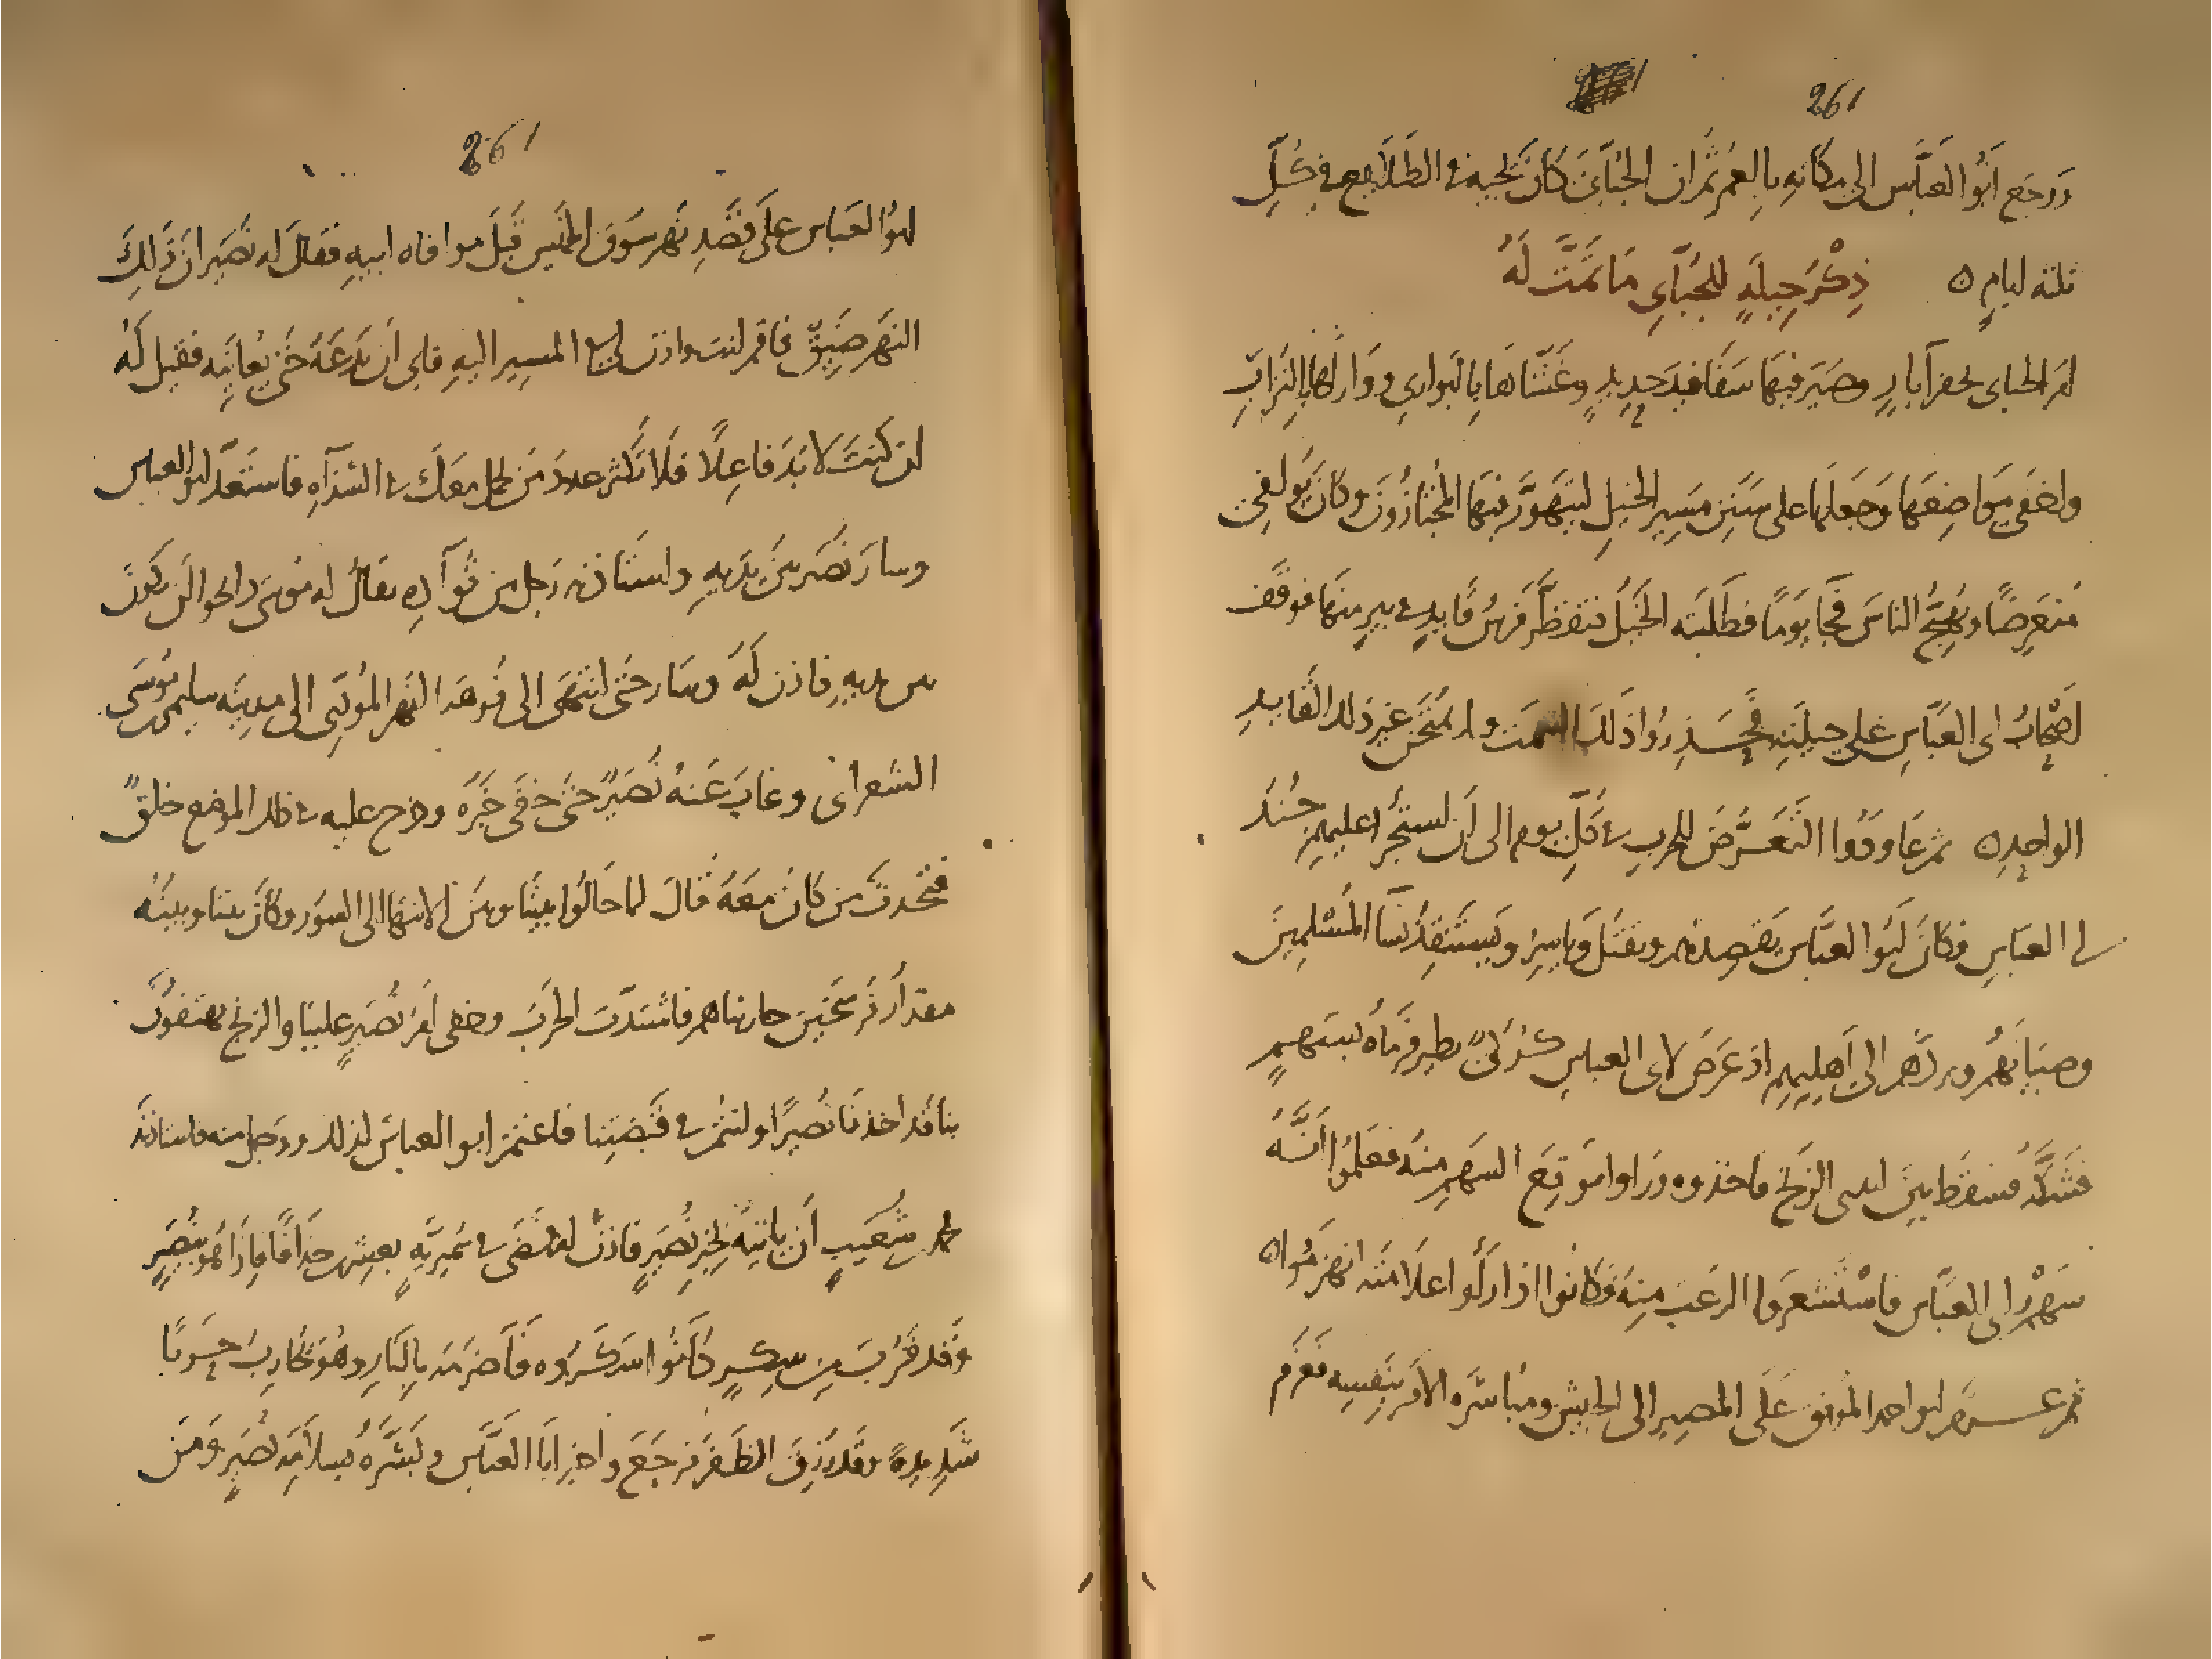 261
ورجع أبو العباس الى مكانه بالعمر ثم ان الجبائى كان يجيه فى الطلايع فى كل
ثلثة ايام ذكر حيلة للجبآى ما تمت له
امر الجباى بحفر آبار وصير فيها سفافيد حديد وغشاها بالبوارى ووارلها بالتراب
واخفى مواضعها وجعلها على سنن مسير الخيل ليتهور فيها المجتازون وكان يوافى
متعرضا ويهيج الناس فجا يوما فطلبته الخيل فتقطر فرس قايد فى بير منها فوقف
اصحاب ابى العباس على حيلته فحذروا ذلك السمت ولم يمتحن غير ذلك القايد
الواحد ثم عاودوا التعرض للحرب فى كل يوم الى أن استجرا عليهم جند
ابى العباس فكان ابو العباس يقصدهم ويقتل وياسر ويستنقذ نسآ المسلمين
وصبيانهم ويردهم الى أهليهم اذ عرض لابى العباس كركى يطير فرماه بسهم
فشكه فسقط بين ايدى الزنج فاخذوه وراوا موقع السهم منه فعلموا أنه
سهم ابى العباس فاستشعروا الرعب منه فكانوا اذا رأوا علامته انهزموا
ثم عزم ابو احمد الموفق على المصير الى الجيش ومباشره الامر بنفسه فعزم
261
ابو العباس على قصد نهر سوق الخميس قبل موافاه ابيه فقال له نصير ان ذلك
النهر ضيق فاقم انت واذن لى فى المسير اليه فابى أن يدعه حتى يعاينه فقيل له
ان كنت لا بد فاعلا فلا تكثر عدد من تحمل معك فى الشذآه فاستعد ابو العباس
وسار نصر بين يديه واستأذنه رجل من قوآده يقال له موسى دالجوا ان يكون
بين يديه فاذن له وسار حتى انتهى الى فوهه النهر المؤدى الى مدينه سليمن بن موسى
الشعرانى وغاب عنه نصير حتى خفى خبره وخرج عليه فى ذلك الموضع خلق
فتحدث من كان معه قال لما حالوا بيننا وبين الانتها الى السور وكان بيننا وبينه
مقدار فرسخين حاربناهم فاشتدت الحرب وخفى امر نصير علينا والزنج يهتفون
بنا قد اخذنا نصيرا وانتم فى قبضتنا فاغتم ابو العباس لذلك ووجل منه فاستاذنه
محمد بن شعيب أن ياتيه بخبر نصير فاذن له فمضى فى سميريه بعشرين جذافا فاذا هو بنصير
وقد قرب من سكر كانوا سكروه فأضرمه بالنار وهو يحارب حربا
شديدة وقد رزق الظفر فرجع واخبر ابا العباس وبشره بسلامه نصير ومن